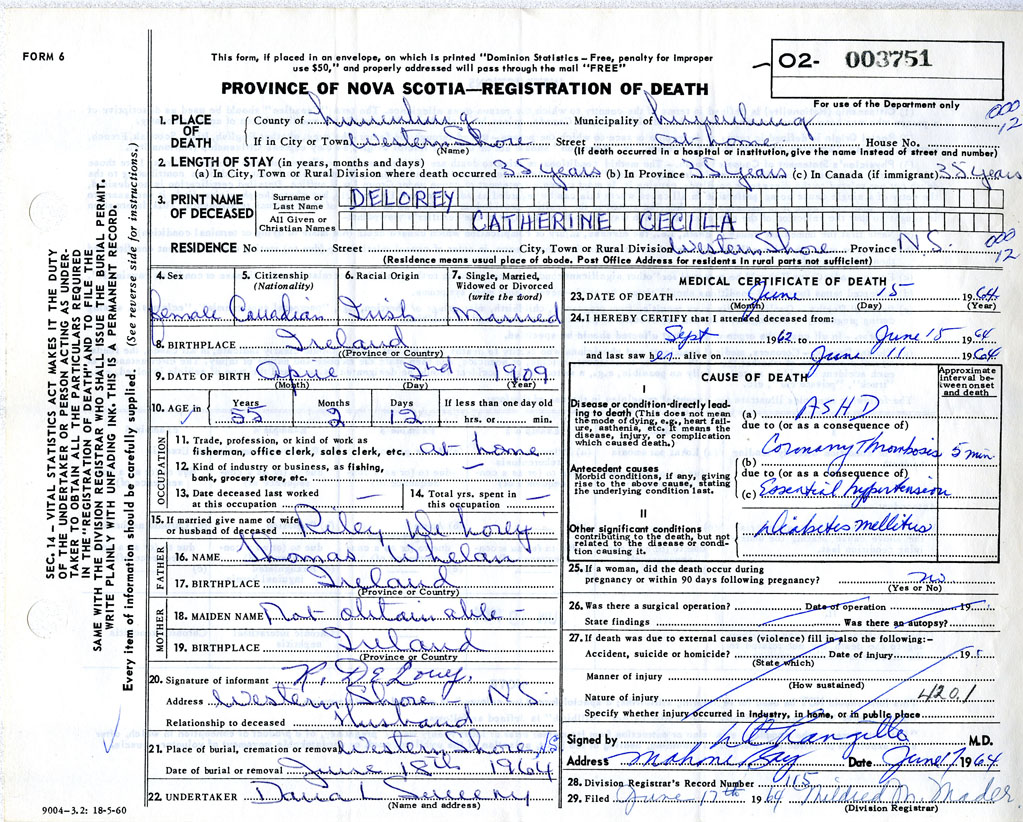 FORM 6
This form, if placed in an envelope, on which is printed "Dominion Statistics – Free, penalty for improper
use $50," and properly addressed will pass through the mail "FREE"
02- 003751
For use of the Department only
PROVINCE OF NOVA SCOTIA—REGISTRATION OF DEATH
000
12
1. PLACE OF DEATH
County of Lunenburg Municipality of Lunenburg
If in City or Town Western Shore Street at home House No.
(Name) (If death occurred in a hospital or institution, give the name instead of street and number)
2. LENGTH OF STAY (in years, months and days)
(a) In City, Town or Rural Division where death occurred 35 years (b) In Province 35 years (c) In Canada (if immigrant) 35 years
3. PRINT NAME OF DECEASED
Surname or Last Name DELOREY
All Given or Christian Names CATHERINE CECILA
RESIDENCE No Street City, Town or Rural Division Western Shore Province N.S. 000 12
(Residence means usual place of abode. Post Office Address for residents in rural parts not sufficient)
4. Sex
female
5. Citizenship (Nationality)
Canadian
6. Racial Origin
Irish
7. Single, Married, Widowed or Divorced (write the word)
Married
8. BIRTHPLACE Ireland
(Province or Country)
9. DATE OF BIRTH April 2nd 1909
(Month) (Day) (Year)
10. AGE in Years 55 Months 2 Days 12 If less than one day old hrs. or min.
OCCUPATION
11. Trade, profession, or kind of work as fisherman, office clerk, sales clerk, etc. at home
12. Kind of industry or business, as fishing, bank, grocery store, etc. —
13. Date deceased last worked at this occupation —
14. Total yrs. spent in this occupation —
15. If married give name of wife or husband of deceased Riley De Lorey
FATHER
16. NAME Thomas Whelan
17. BIRTHPLACE Ireland
(Province or Country)
MOTHER
18. MAIDEN NAME Not obtainable -
19. BIRTHPLACE Ireland
(Province or Country
20. Signature of informant R. DeLorey.
Address Western Shore - N.S.
Relationship to deceased Husband
21. Place of burial, cremation or removal Western Shore N.S.
Date of burial or removal June 18th 1964
22. UNDERTAKER L
(Name and address)
MEDICAL CERTIFICATE OF DEATH
23. DATE OF DEATH June 15 1964
(Month) (Day) (Year)
24. I HEREBY CERTIFY that I attended deceased from:
Sept 1962 to June 15 1964
and last saw her alive on June 11 1964
CAUSE OF DEATH
Approximate interval between onset and death
I
Disease or condition directly leading to death (This does not mean the mode of dying, e.g., heart failure, asthenia, etc. It means the disease, injury, or complication which caused death.)
(a) ASHD
due to (or as a consequence of)
Coronary Thrombosis 5 min.
Antecedent causes
Morbid conditions, if any, giving rise to the above cause, stating the underlying condition last.
(b)
due to (or as a consequence of)
(c) Essential hypertension
II
Other significant conditions contributing to the death, but not related to the disease or condition causing it.
Diabetes mellitus
25. If a woman, did the death occur during pregnancy or within 90 days following pregnancy? no
(Yes or No)
26. Was there a surgical operation? Date of operation 19
State findings Was there an autopsy?
27. If death was due to external causes (violence) fill in also the following:–
Accident, suicide or homicide? Date of injury 19
(State which)
Manner of injury
(How sustained)
Nature of injury 4201
Specify whether injury occurred in industry, in home, or in public place
Signed by M.D.
Address Mahone Bay Date June 17 1964
28. Division Registrar's Record Number 115
29. Filed June 17th 1964 Mildred M. Mader
(Division Registrar)
SEC. 14 — VITAL STATISTICS ACT MAKES IT THE DUTY
OF THE UNDERTAKER OR PERSON ACTING AS UNDER-
TAKER TO OBTAIN ALL THE PARTICULARS REQUIRED
IN THE "REGISTRATION OF DEATH" AND TO FILE THE
SAME WITH THE DIVISION REGISTRAR WHO SHALL ISSUE THE BURIAL PERMIT.
WRITE PLAINLY WITH UNFADING INK. THIS IS A PERMANENT RECORD.
Every item of information should be carefully supplied. (See reverse side for instructions.)
9004-3.2: 18-5-60